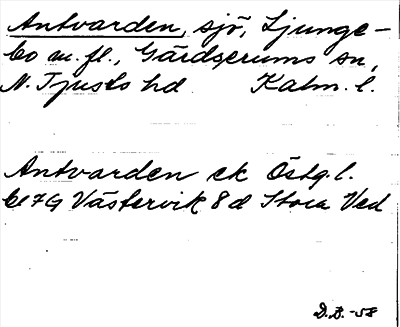 Antvarden, sjö, Ljunge-
bo m.fl., Gärdserums sn,
N. Tjusts hd Kalm. l.
Antvarden ek Östg.l.
bl 7G Västervik 8d Stora Ved
D.B. -58